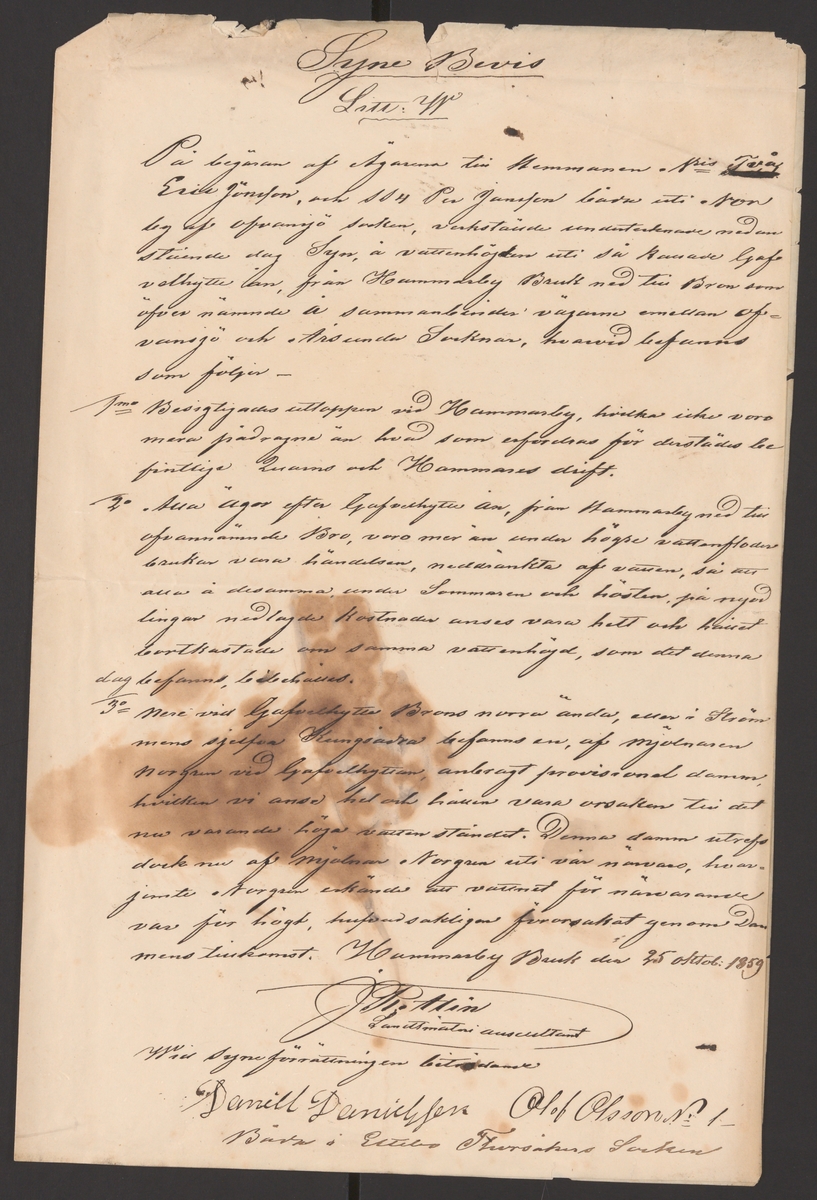 Syne Bevis
Litt: W
På begäran af Ägarena till Hemmanen Nris Två
Eric Jönsson, och 114 Per Jansson båda uti Nor
by af Ofvansjö socken, verkstälde undertecknade nedan
stående dag Syn, å vattenhöjden uti så kallade Gaf
velhytte ån, från Hammarby Bruk ned till Bron som
öfver nämnde å sammanbinder vägarne emellan Of=
vansjö och Årsunda Socknar, hvarvid befanns
som följer —
1mo Besigtigades utloppen vid Hammarby, hvilka icke voro
mera pådragne än hvad som erfordras för derstädes be
fintlige Quarns och Hammares drift.
2o Alla ägor efter Gafvelhytte ån, från Hammarby ned till
ofvannämnde Bro, voro mer än under högre vattenfloder
brukar vara händelsen, neddränkta af vatten, så att
alla å desamma under Sommaren och hösten, på nyod
lingar nedlagde kostnader anses vara helt och hållet
bortkastade om samma vattenhöjd, som det denna
dag befanns, bibehålles.
3o Nere vid Gafvelhytte Brons norra ända, eller i Ström
mens sjelfva Kungsådra befanns en, af Mjölnaren
Norgren vid Gafvelhyttan, anbragt provisionel damm,
hvilken vi anse hel och hållen vara orsaken till det
nu varande höga vattenståndet. Denna damm utrefs
dock nu af Mjölnar Norgren uti vår närvaro, hvar-
jemte Norgren erkände att vattnet för närvarande
var för högt, hufvudsakligen förorsakat genom Dam
mens tillkomst. Hammarby Bruk den 25 Oktob: 1859
Landtmäteri auscultant
Wid Syneförrättningen biträdande
Daniell Danielssen Olof Olsson No 1
Båda i Thorsåkers Socken